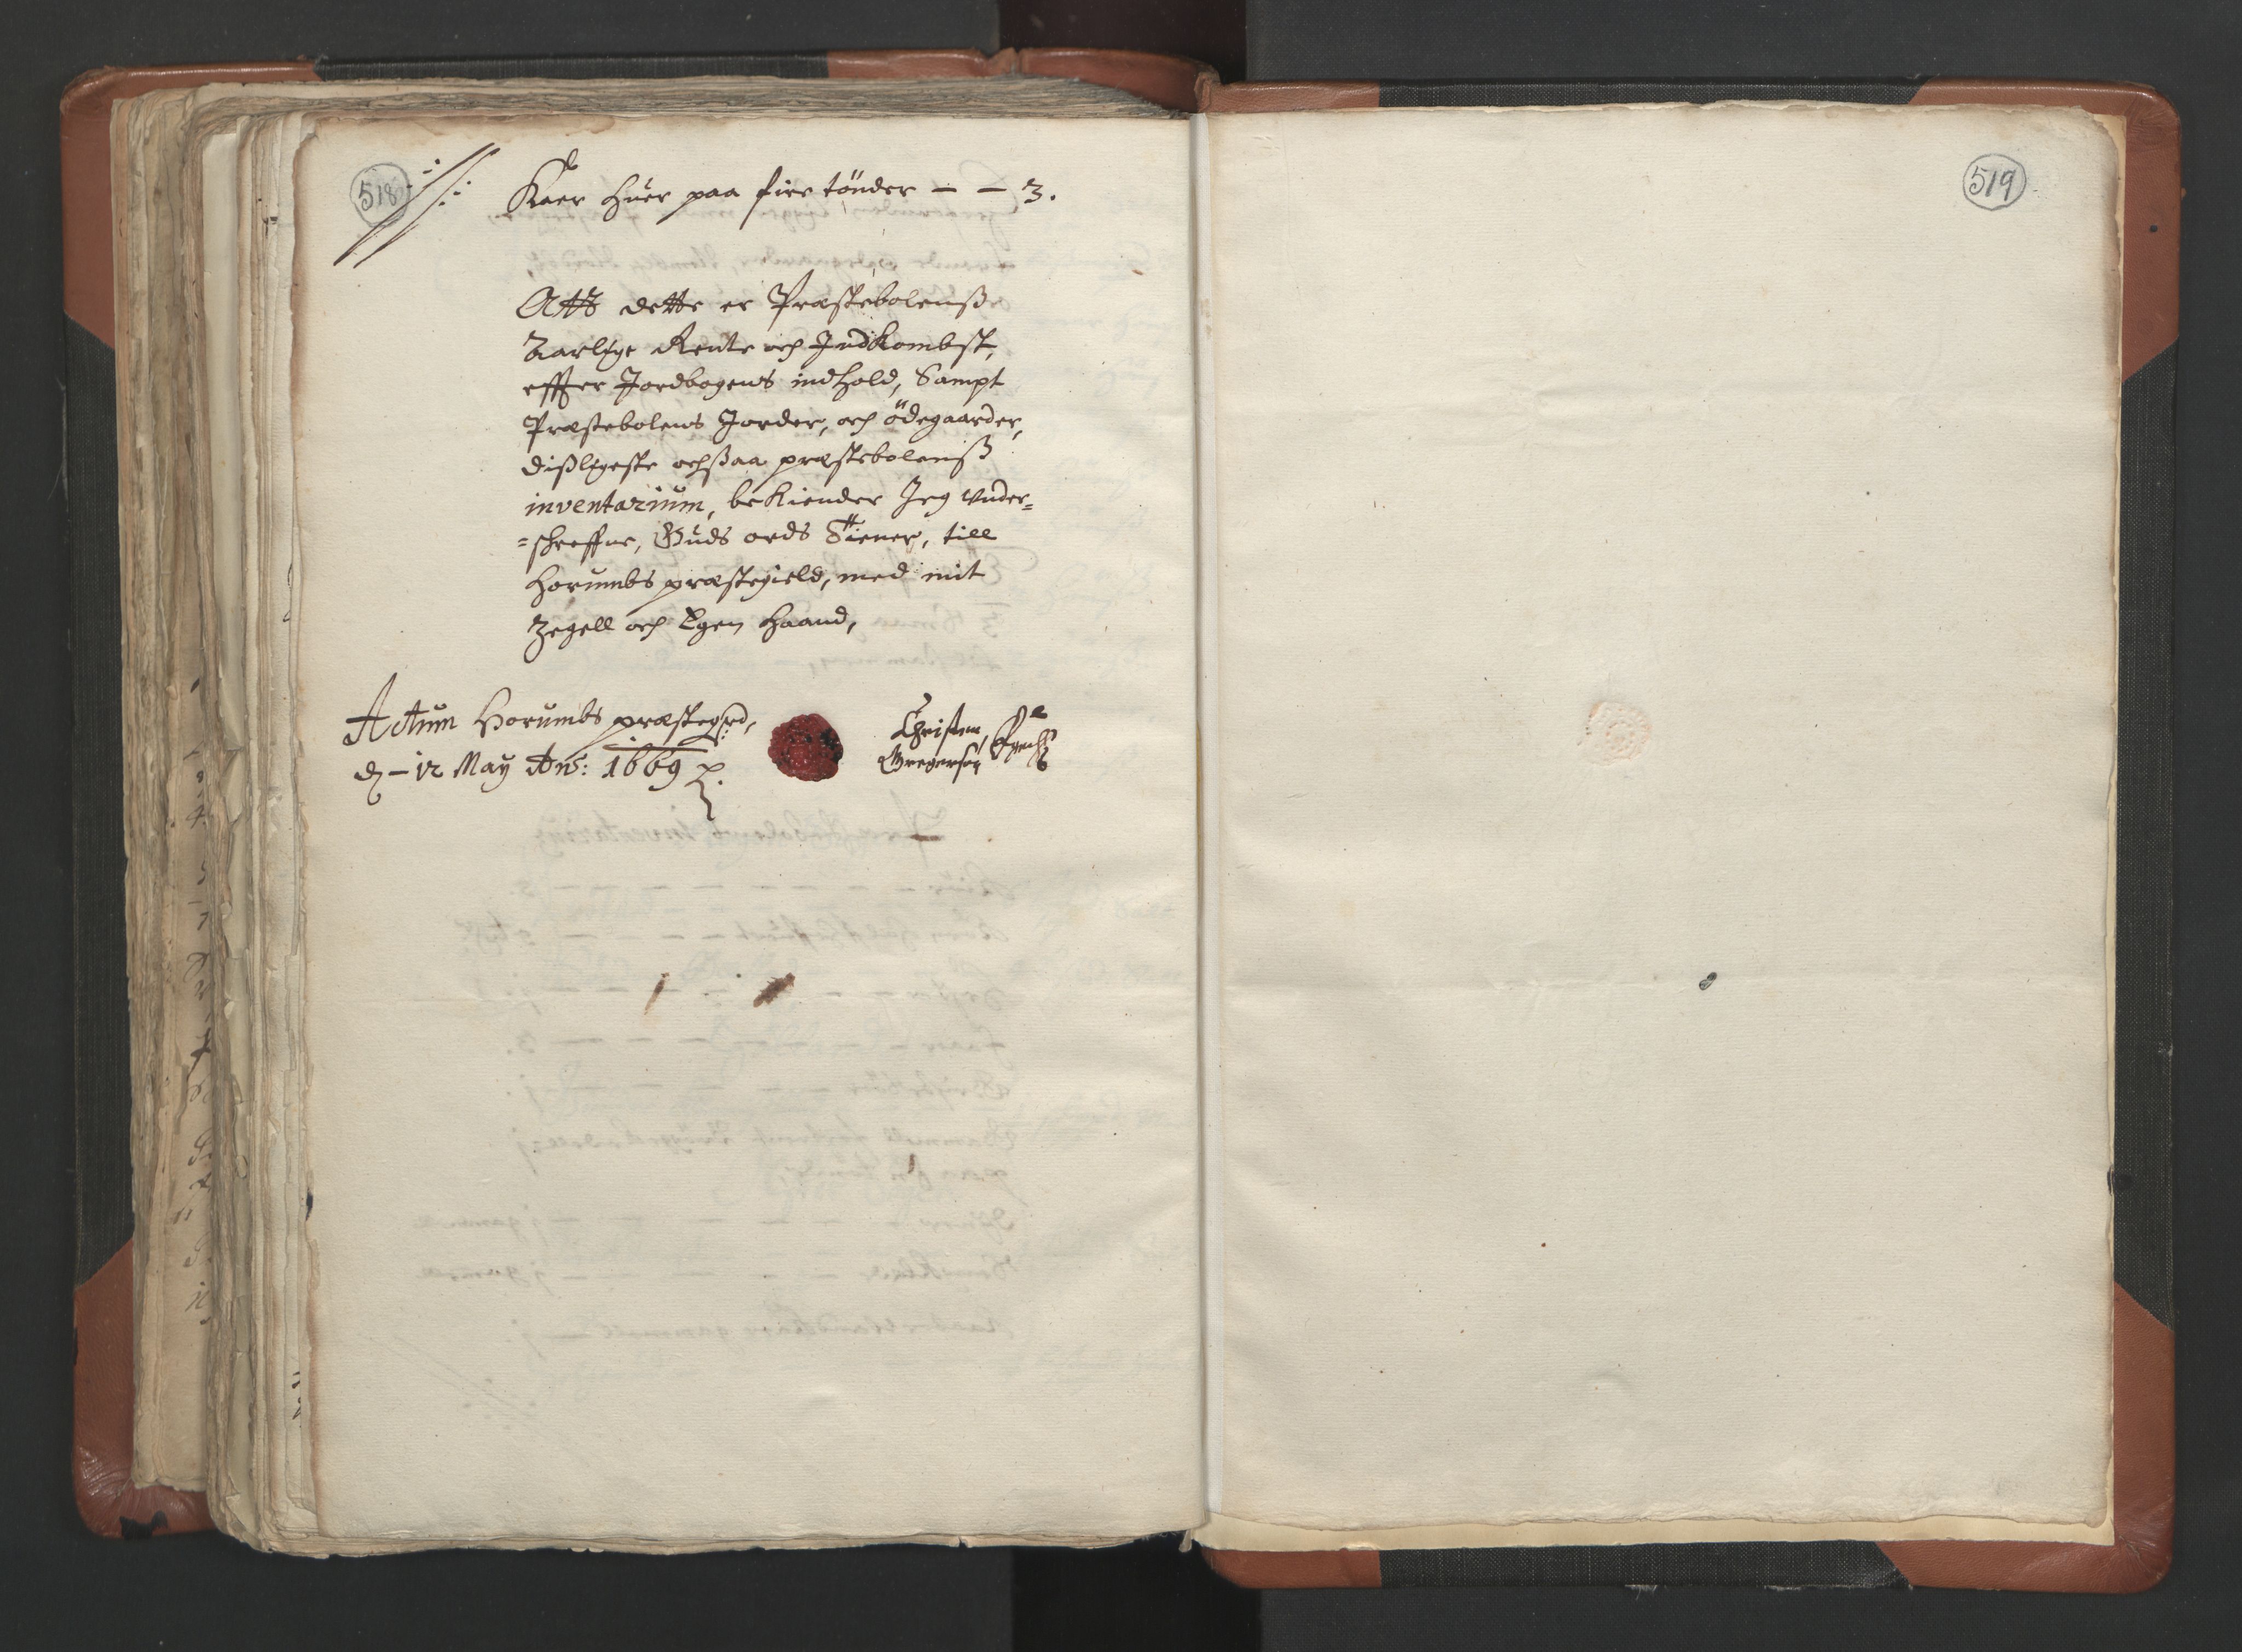 518
Kaer huer paa fire tönder – – 3.
Att dette er Præstebolenß
Aarlige Rente och Indkombst,
effter Jordbogens indhold, Sampt
Præstebolens Jorder, och ödegaarder,
dißligeste ochsaa præstebolenß
inventarium, bekiender Jeg under=
=schreffne, Guds ords Tiener, till
Horumbs præstegield, med mit
Zegell och Egen Haand,
Actum Horumbs præstegrd,
d – 12 May Ano: 1669
Christen
Gregersøn
519